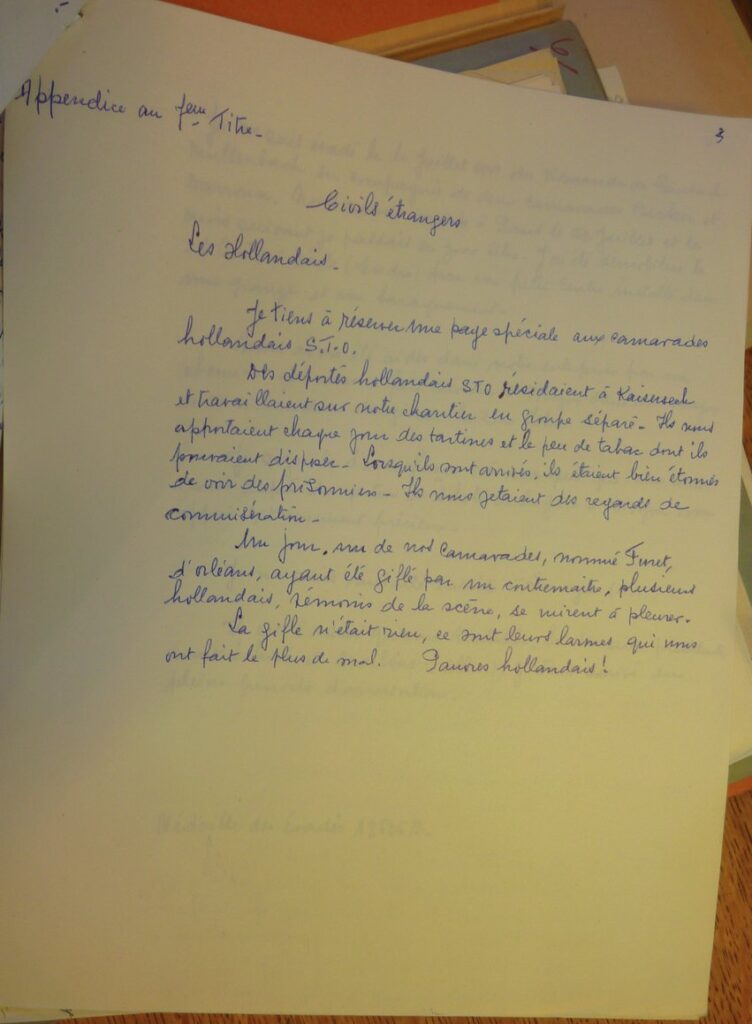 3
Appendice au 7ème Titre-
Civils étrangers
Les Hollandais-
Je tiens à réserver une page spéciale aux camarades
hollandais S.T.O.
Des déportés hollandais STO résidaient à Kaiserseck
et travaillaient sur notre chantier en groupe séparé- Ils nous
apportaient chaque jour des tartines et le peu de tabac dont ils
pouvaient disposer- Lorsqu'ils sont arrivés, ils étaient bien étonnés
de voir des prisonniers- Ils nous jetaient des regards de
commisération-
Un jour, un de nos camarades, nommé Furet,
d'orléans, ayant été giflé par un contremaitre, plusieurs
hollandais, témoins de la scène, se mirent à pleurer.
La gifle n'était rien, ce sont leurs larmes qui nous
ont fait le plus de mal. Pauvres hollandais!